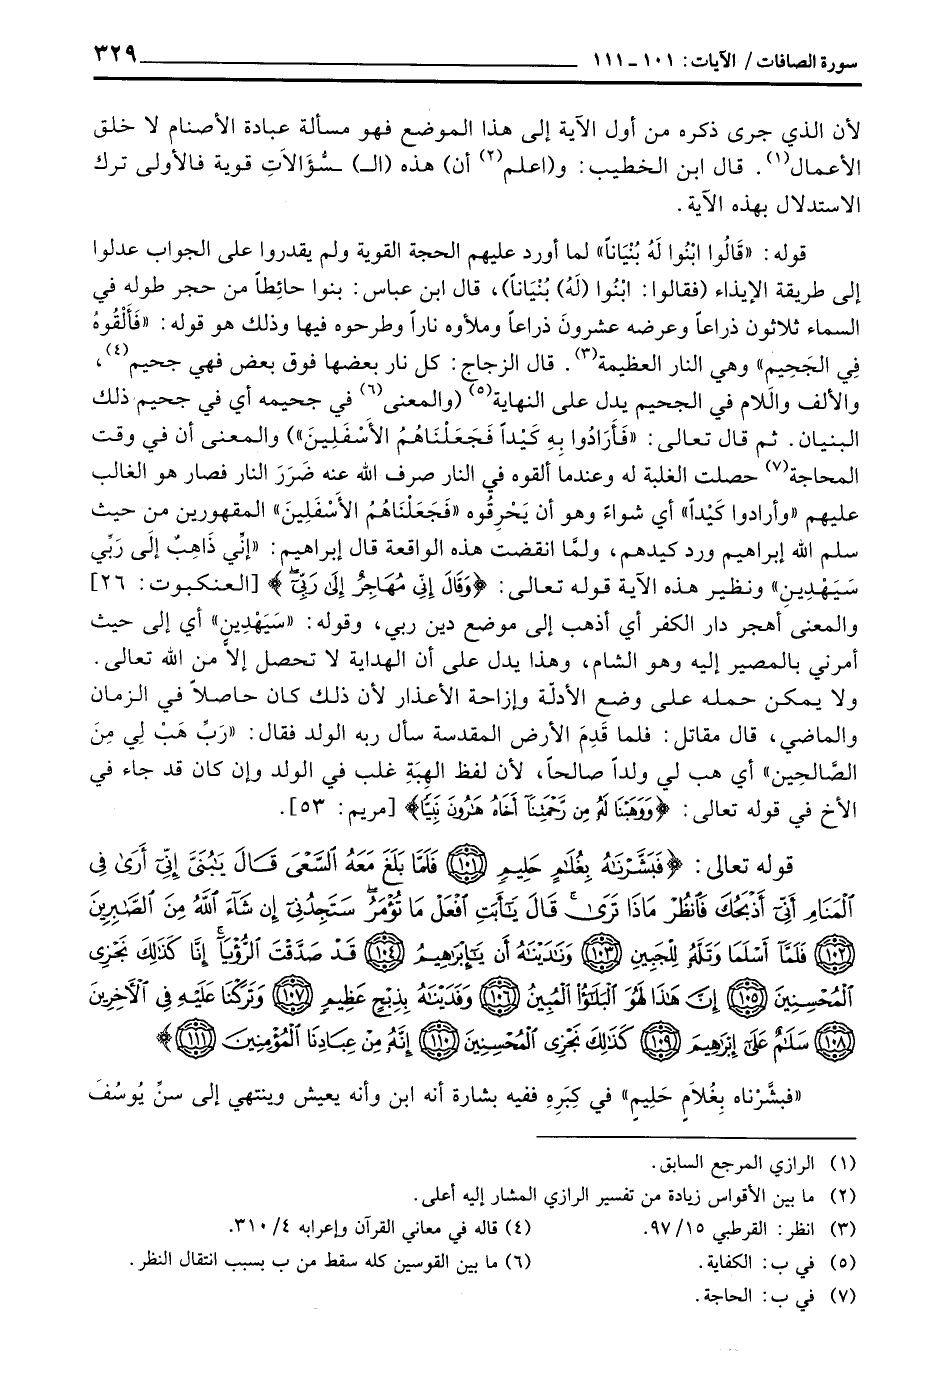 سورة الصافات / الآيات: ١٠١ ـ ١١١ ٣٢٩
لأن الذي جرى ذكره من أول الآية إلى هذا الموضع فهو مسألة عبادة الأصنام لا خلق
الأعمال(١). قال ابن الخطيب: و(اعلم(٢) أن) هذه (الـ) ـسُّؤَالاَتِ قوية فالأولى ترك
الاستدلال بهذه الآية.
قوله: «قَالُوا ابْنُوا لَهُ بُنْيَاناً» لما أورد عليهم الحجة القوية ولم يقدروا على الجواب عدلوا
إلى طريقة الإيذاء (فقالوا: ابْنُوا (لَهُ) بُنْيَاناً)، قال ابن عباس: بنوا حائِطاً من حجر طوله في
السماء ثلاثون ذراعاً وعرضه عشرونَ ذراعاً وملأوه ناراً وطرحوه فيها وذلك هو قوله: «فَأَلْقُوهُ
فِي الجَحِيمِ» وهي النار العظيمة(٣). قال الزجاج: كل نار بعضها فوق بعض فهي جحيم(٤)،
والألف والَلام في الجحيم يدل على النهاية(٥) (والمعنى(٦) في جحيمه أي في جحيم ذلك
البنيان. ثم قال تعالى: «فَأَرَادُوا بِهِ كَيْداً فَجَعَلْنَاهُمُ الأَسْفَلِينَ») والمعنى أن في وقت
المحاجة(٧) حصلت الغلبة له وعندما ألقوه في النار صرف الله عنه ضَرَرَ النار فصار هو الغالب
عليهم «وأرادوا كَيْداً» أي شواءً وهو أن يَحْرِقُوه «فَجَعَلْنَاهُمُ الأَسْفَلِينَ» المقهورين من حيث
سلم الله إبراهيم ورد كيدهم، ولمَّا انقضت هذه الواقعة قال إبراهيم: «إنِّي ذَاهِبٌ إلَى رَبِّي
سَيَهْدِينِ» ونظير هذه الآية قوله تعالى: ﴿وَقَالَ إِنِّي مُهَاجِرٌ إِلَى رَبِّيٓ﴾ [العنكبوت: ٢٦]
والمعنى أهجر دار الكفر أي أذهب إلى موضع دين ربي، وقوله: «سَيَهْدِينِ» أي إلى حيث
أمرني بالمصير إليه وهو الشام، وهذا يدل على أن الهداية لا تحصل إلاَّ من الله تعالى.
ولا يمكن حمله على وضع الأدلّة وإزاحة الأعذار لأن ذلك كان حاصلاً في الزمان
والماضي، قال مقاتل: فلما قَدِمَ الأرض المقدسة سأل ربه الولد فقال: «رَبِّ هَبْ لِي مِنَ
الصَّالحِين» أي هب لي ولداً صالحاً، لأن لفظ الهِبَةِ غلب في الولد وإن كان قد جاء في
الأخ في قوله تعالى: ﴿وَوَهَبْنَا لَهُۥ مِن رَّحْمَتِنَآ أَخَاهُ هَٰرُونَ نَبِيًّا﴾ [مريم: ٥٣].
قوله تعالى: ﴿فَبَشَّرْنَٰهُ بِغُلَٰمٍ حَلِيمٍ (١٠١) فَلَمَّا بَلَغَ مَعَهُ ٱلسَّعْىَ قَالَ يَٰبُنَىَّ إِنِّىٓ أَرَىٰ فِى
ٱلْمَنَامِ أَنِّىٓ أَذْبَحُكَ فَٱنظُرْ مَاذَا تَرَىٰ قَالَ يَٰٓأَبَتِ ٱفْعَلْ مَا تُؤْمَرُ سَتَجِدُنِىٓ إِن شَآءَ ٱللَّهُ مِنَ ٱلصَّٰبِرِينَ
(١٠٢) فَلَمَّآ أَسْلَمَا وَتَلَّهُۥ لِلْجَبِينِ (١٠٣) وَنَٰدَيْنَٰهُ أَن يَٰٓإِبْرَٰهِيمُ (١٠٤) قَدْ صَدَّقْتَ ٱلرُّءْيَآ إِنَّا كَذَٰلِكَ نَجْزِى
ٱلْمُحْسِنِينَ (١٠٥) إِنَّ هَٰذَا لَهُوَ ٱلْبَلَٰٓؤُا۟ ٱلْمُبِينُ (١٠٦) وَفَدَيْنَٰهُ بِذِبْحٍ عَظِيمٍ (١٠٧) وَتَرَكْنَا عَلَيْهِ فِى ٱلْءَاخِرِينَ
(١٠٨) سَلَٰمٌ عَلَىٰٓ إِبْرَٰهِيمَ (١٠٩) كَذَٰلِكَ نَجْزِى ٱلْمُحْسِنِينَ (١١٠) إِنَّهُۥ مِنْ عِبَادِنَا ٱلْمُؤْمِنِينَ (١١١)﴾
«فبشَّرْناه بِغُلاَمٍ حَلِيمٍ» في كِبَرِهِ ففيه بشارة أنه ابن وأنه يعيش وينتهي إلى سنِّ يُوسُفَ
(١) الرازي المرجع السابق.
(٢) ما بين الأقواس زيادة من تفسير الرازي المشار إليه أعلى.
(٣) انظر: القرطبي ٩٧/١٥. (٤) قاله في معاني القرآن وإعرابه ٤/ ٣١٠.
(٥) في ب: الكفاية. (٦) ما بين القوسين كله سقط من ب بسبب انتقال النظر.
(٧) في ب: الحاجة.